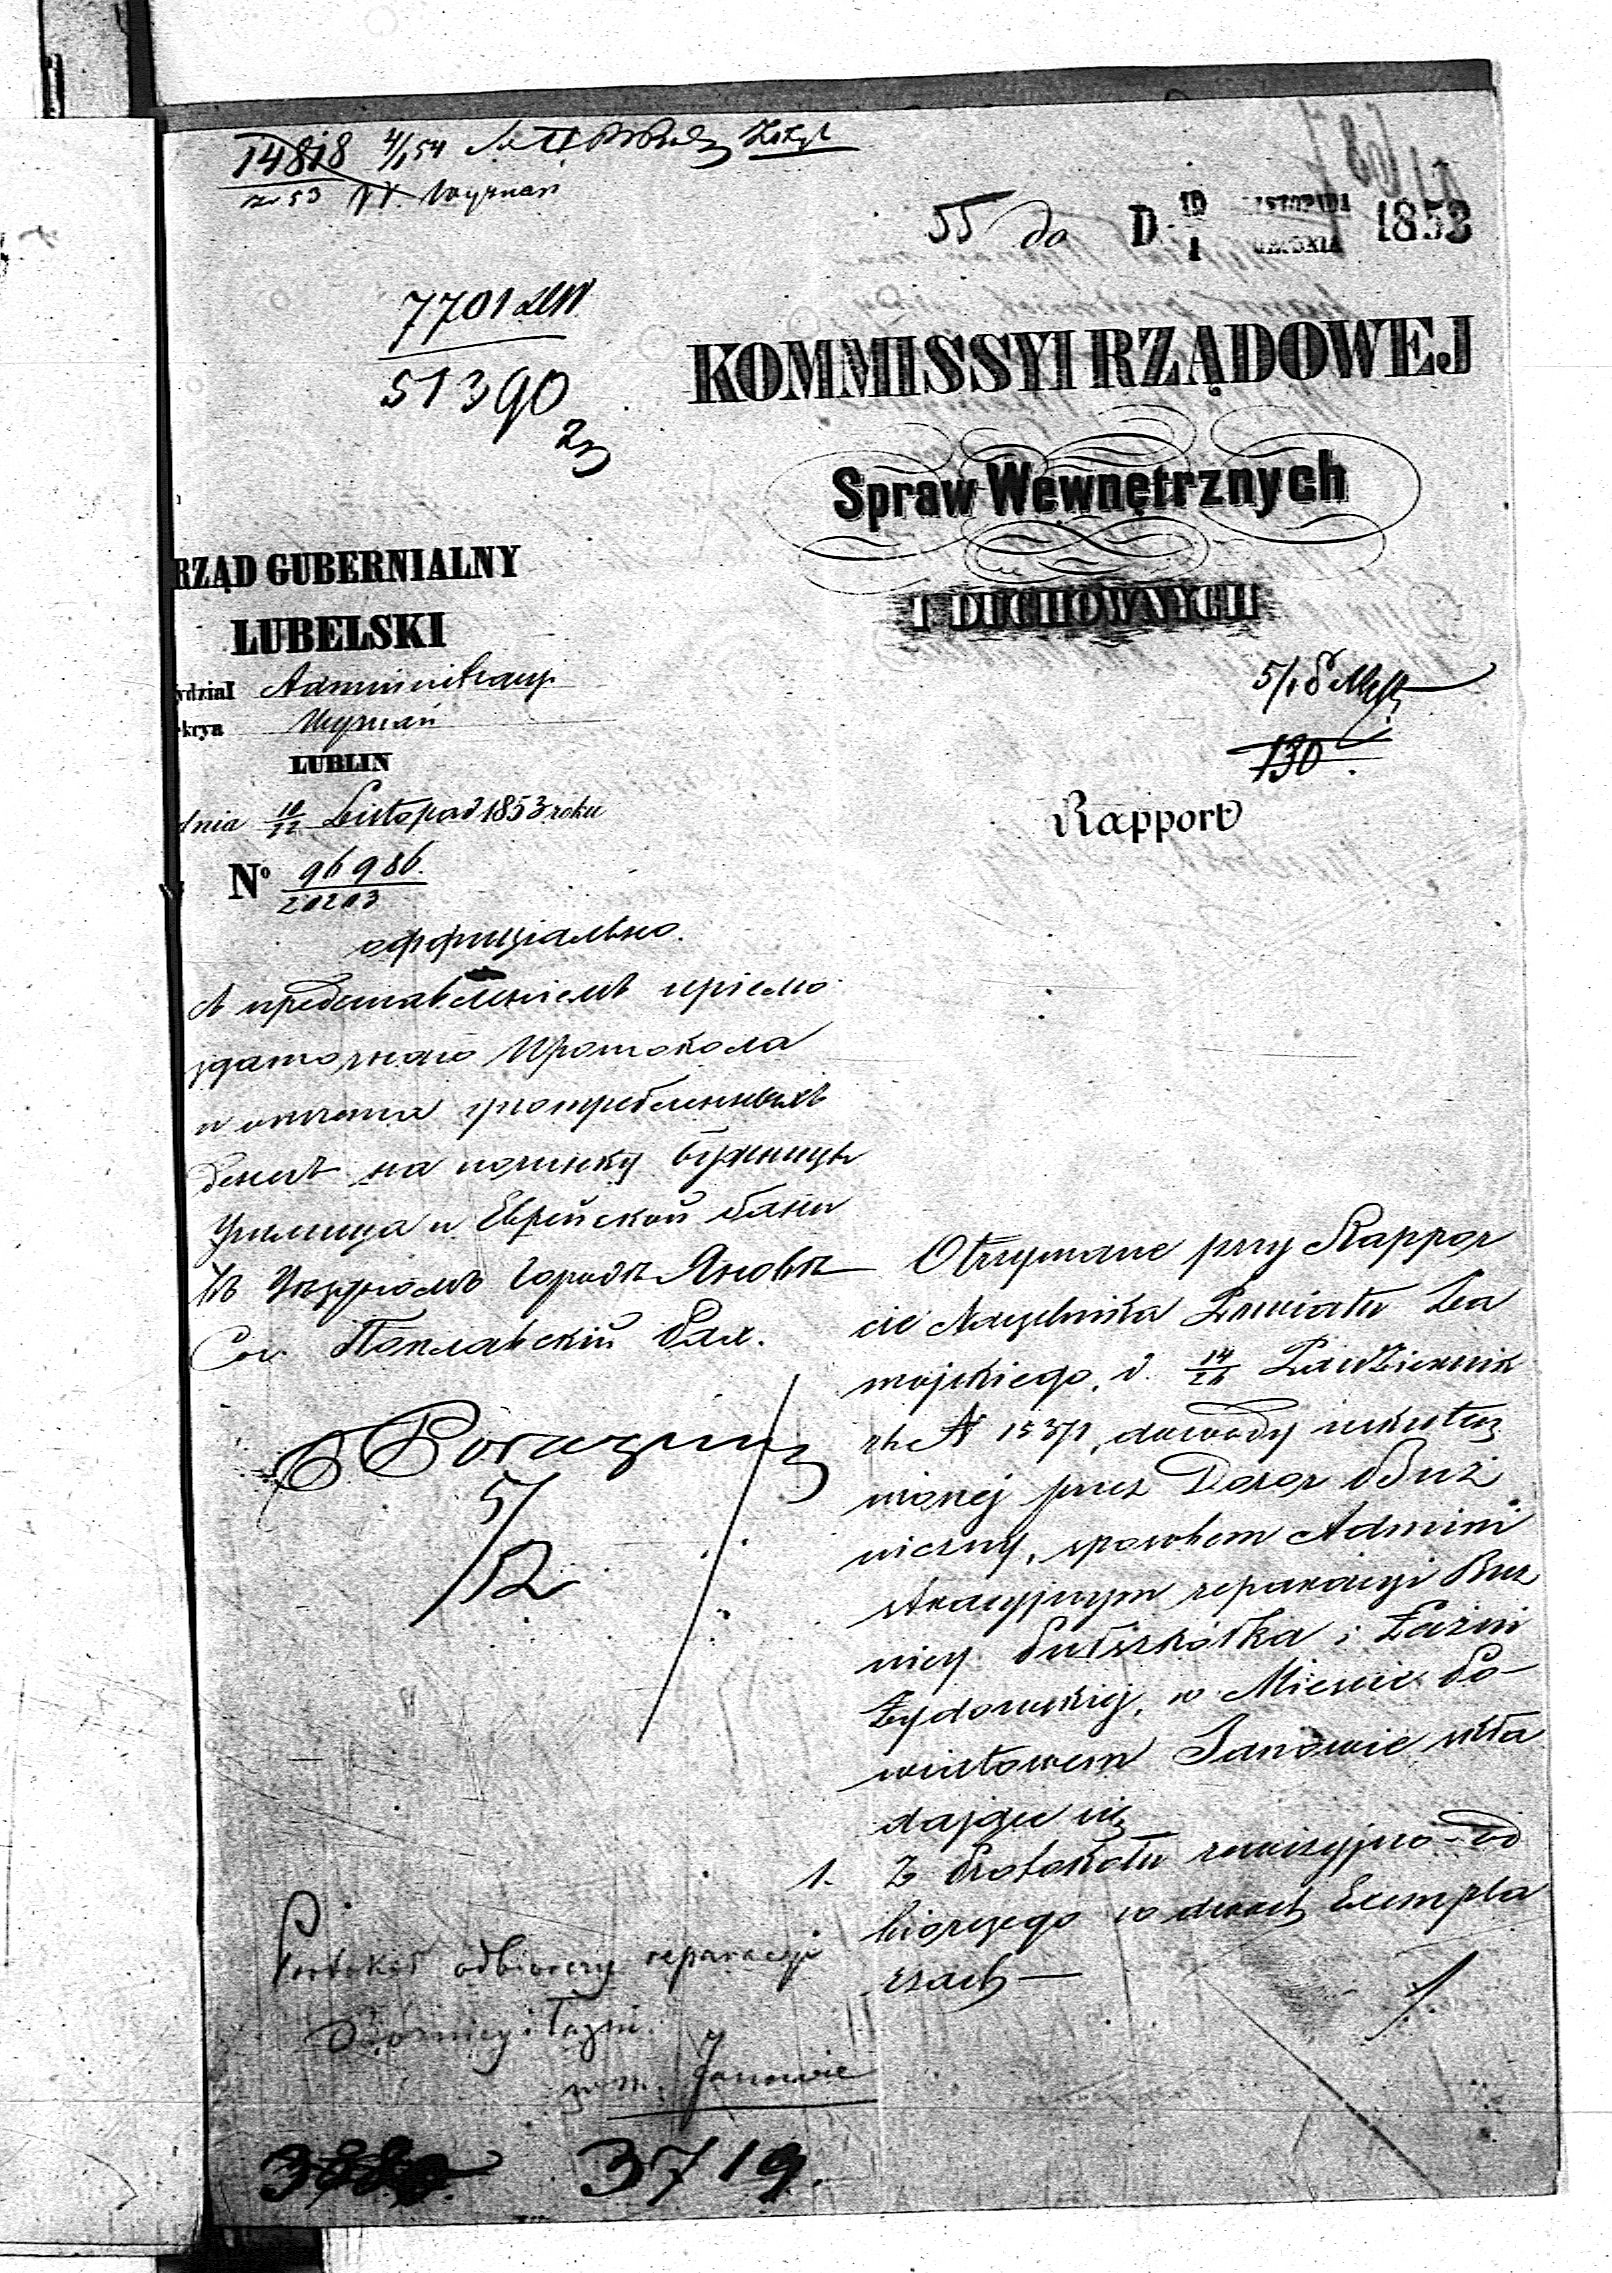 14818 4/1 54
z 53 W. Wyznań
55 do D. 19/1 LISTOPADA GRUDNIA 1853
7701
51390
23
KOMMISSYI RZĄDOWEJ
Spraw Wewnętrznych
I DUCHOWNYCH
RZĄD GUBERNIALNY
LUBELSKI
ydział Administracyj
kcya Wyznań
LUBLIN
dnia 10/22 Listopad 1853 roku
No 96986.
20213
5/1
130
Rapport
оффиціально.
Съ представленіемъ пріемо
здаточнаго Протокола
и счета употребленныхъ
денегъ на починку божницы
Училища и Еврейской бани
Въ Уѣздномъ Городѣ Яновѣ
Сов. Поплавскій
5/12
Otrzymane przy Rappor
cie Naczelnika Powiatu Za
mojskiego, d. 14/26 Październik
rb. N 15371, dowody uskutecz
nionej przez Dozor Buż
niczny, sposobem Admini
stracyjnym reparacyi Buż
nicy Podszkółka i Łaźni
Żydowskiej, w Mieście Po-
wiatowem Janowie skła
dające się
1. Z Protokółu rewizyjno-od
biorczego w dwóch Exempla
rzach —
Protokół odbiorczy reparacyi
Bożnicy i Łazni
w m. Janowie
3719.